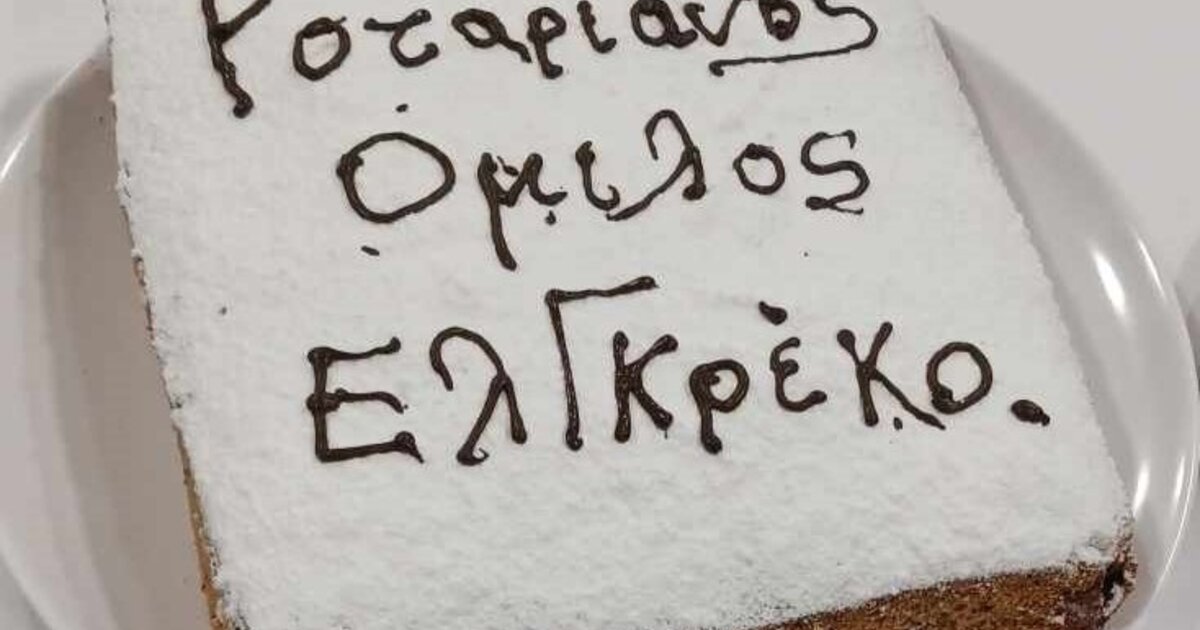 Ροταριανος
Ομιλος
Ελ Γκρέκο.